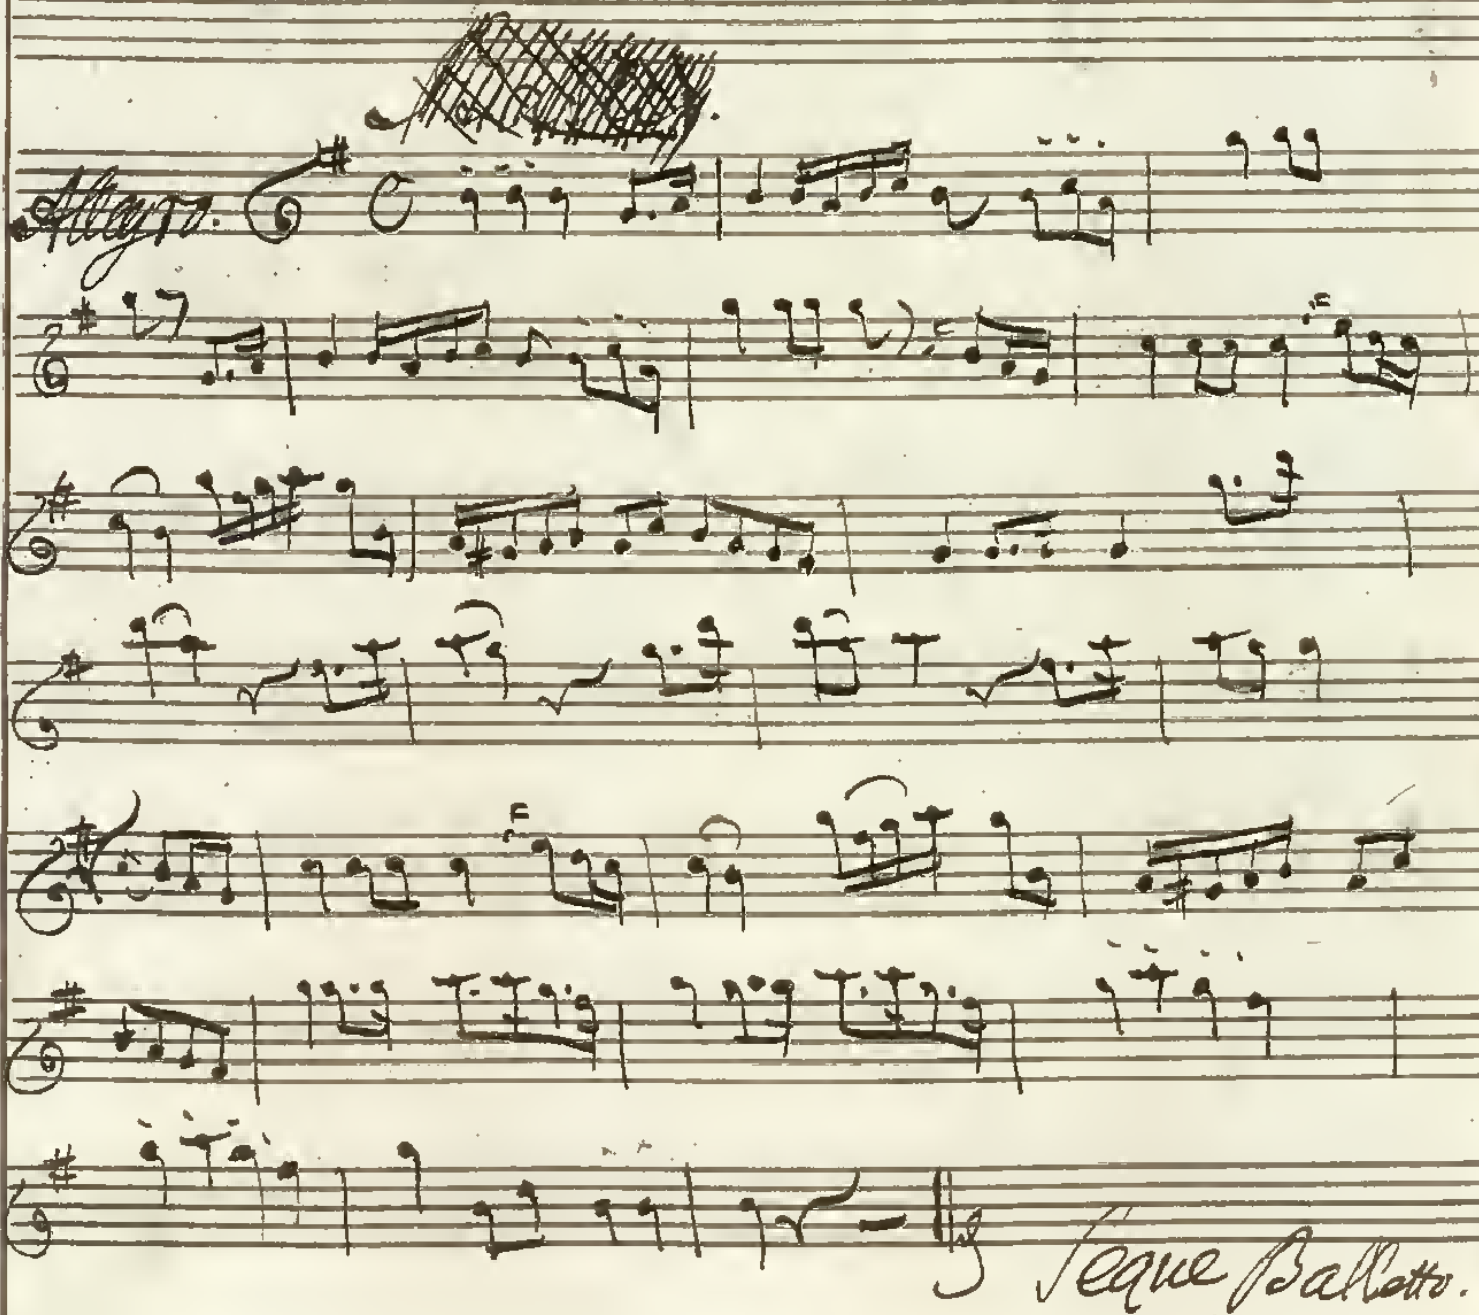 Allegro.
Segue Balletto.